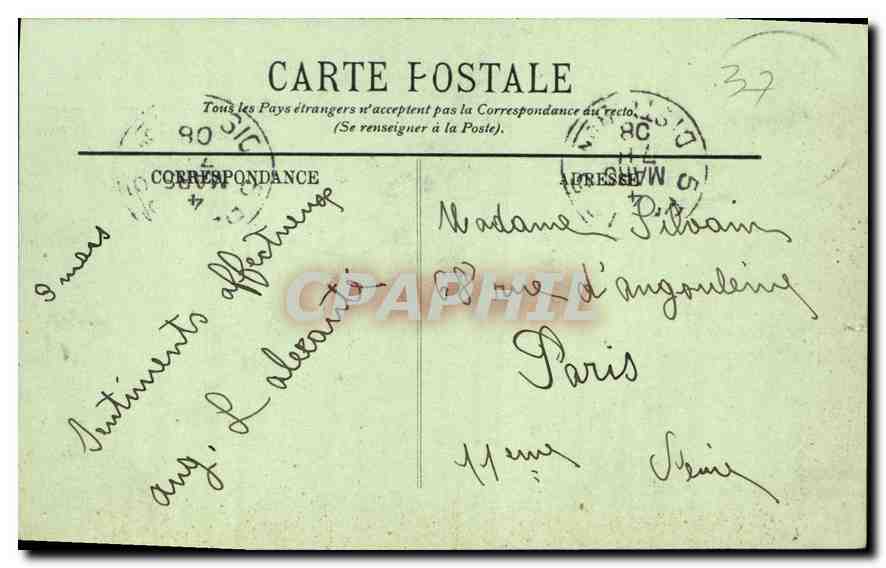 CARTE POSTALE
Tous les Pays étrangers n'acceptent pas la Correspondance au recto
(Se renseigner à la Poste).
37
CORRESPONDANCE
ADRESSE
9 mars
Sentiments affectueux
ang.
Madame Silvain
68 rue d'angoulème
Paris
11eme Seine
CPAPHIL
DIST
08
7 H
MARS
4
08
MARS
4